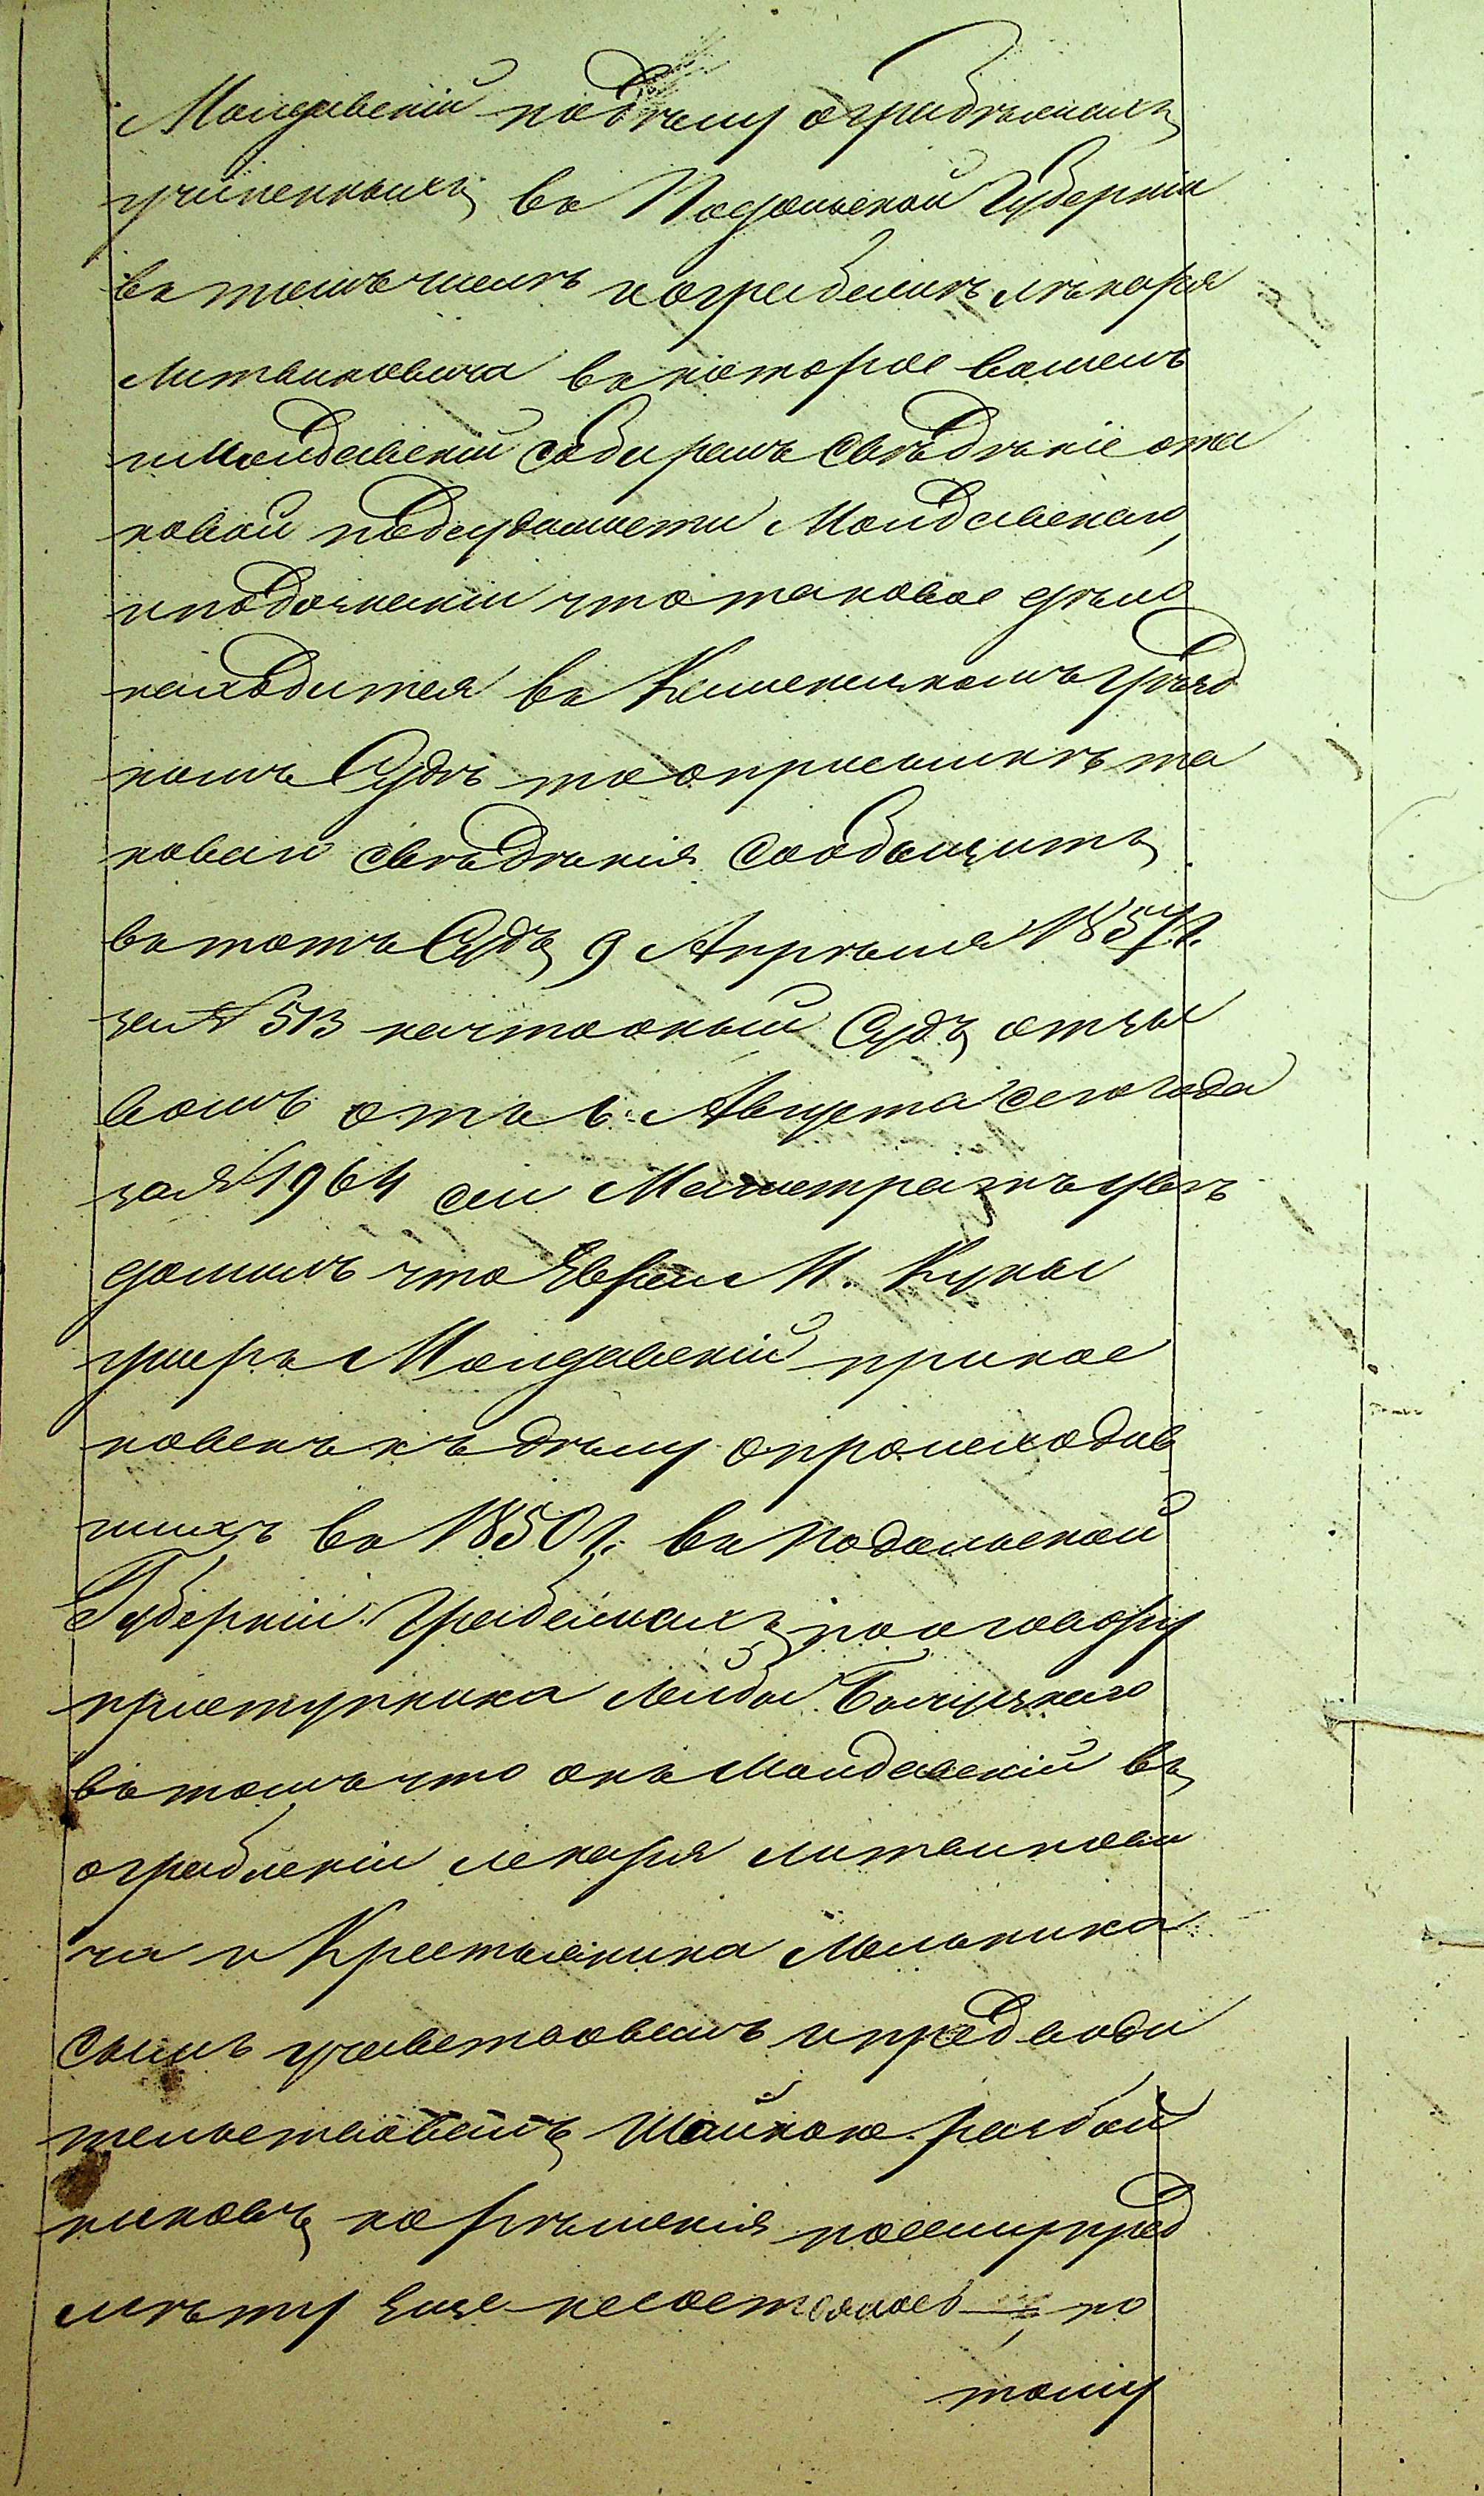 Молдавскій по дѣлу о грабѣжахъ
учиненныхъ въ Подольской Губерніи
въ томъ числѣ и ограбилъ лѣкаря
Литвиновича въ которое вошелъ
и Молдавскій собиралъ свѣдѣніе ота
ковой подсудимости Молдавскаго,
и по дознаніи что таковое дѣло
находится въ Каменецкомъ Уѣзд
номъ Судѣ то о присылкѣ та
коваго свѣдѣнія сообщитъ
въ тотъ Судъ 9 Апрѣля 1857 г.
за № 513 на что оный Судъ отзы
вомъ отъ 6. Августа сего года
за № 1964 сей Магистратъ увѣ
домилъ что Еврей М. Куны
Умеръ Молдавскій прикос
новенъ къ дѣлу о происходив
шихъ въ 1850 г. въ Подольской
Губерніи грабежахъ по оговору
приступника Лейбы
въ томъ что онъ Молдавскій въ
ограбленіи лекаря Литвинови
ча и Крестьянина Мельника
самъ учавствовалъ и предводи
тельствовалъ Шайкою разбой
никовъ но рѣшенія по сему пред
мѣту еще несостоялось по
тому